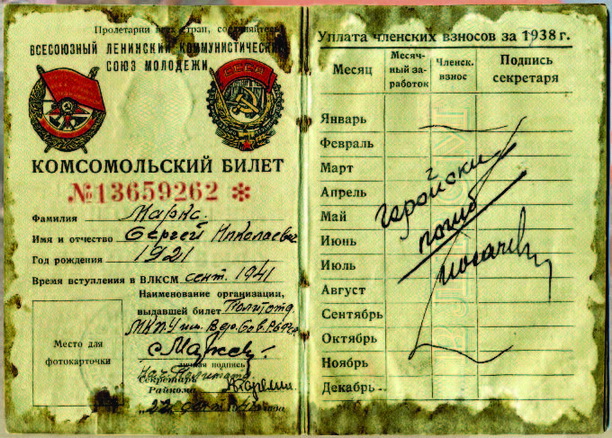 Пролетарии всех стран, соединяйтесь
ВСЕСОЮЗНЫЙ ЛЕНИНСКИЙ КОММУНИСТИЧЕСКИЙ
СОЮЗ МОЛОДЕЖИ
КОМСОМОЛЬСКИЙ БИЛЕТ
№13659262 *
Фамилия Маркс.
Имя и отчество Сергей Николаевич
Год рождения 1921
Время вступления в ВЛКСМ сент. 1941
Наименование организации,
выдавшей билет Политотд.
Место для
фотокарточки
личная подпись
Секретарь
Райкома
Уплата членских взносов за 1938 г.
Месяц
Месяч-
ный за-
работок
Членск.
взнос
Подпись
секретаря
Январь
Февраль
Март
Апрель
Май
Июнь
Июль
Август
Сентябрь
Октябрь
Ноябрь
Декабрь
геройски
погиб